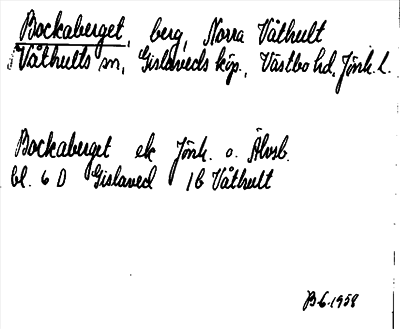 Bockaberget, berg, Norra Våthult
Våthults sn, Gislaveds köp., Västbo hd, Jönk. l.
Bockaberget ek Jönk. o. Älvsb.
bl. 6 D Gislaved 1b Våthult
B-6.1958